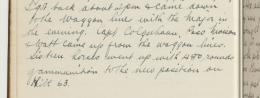 back about 2pm & came down
to the Waggon line with the Major in
the evening. Capt Colquhoun,
& Watt came up from the waggon lines.
Sixteen horses went up with 480 rounds
of ammunition to the new position on
Hill 63.